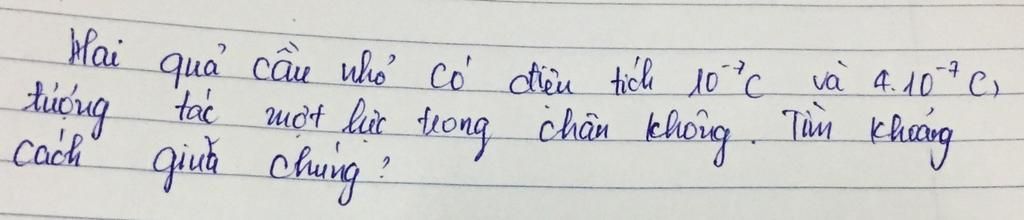 Hai quả cầu nhỏ có điện tích 10⁻⁷C và 4.10⁻⁷ C,
tương tác một lực trong chân không. Tìm khoảng
cách giữa chúng?